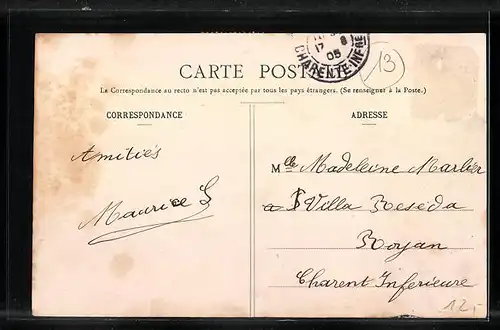 17 8
05
CHARENTE-INFRE
(13)
CARTE POST
La Correspondance au recto n'est pas acceptée par tous les pays étrangers. (Se renseigner à la Poste.)
CORRESPONDANCE
Amitiés
Maurice S
ADRESSE
Mlle Madeleine Marlier
Villa Reseda
Royan
Charent Inferieure
12.-